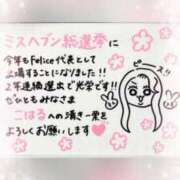 ミスヘブン総選挙に
今年もFelice代表として
出場することになりました!!
2年連続選出で光栄です!!
ぜひともみなさま
こはるへの清き一票を
よろしくお願いします♥